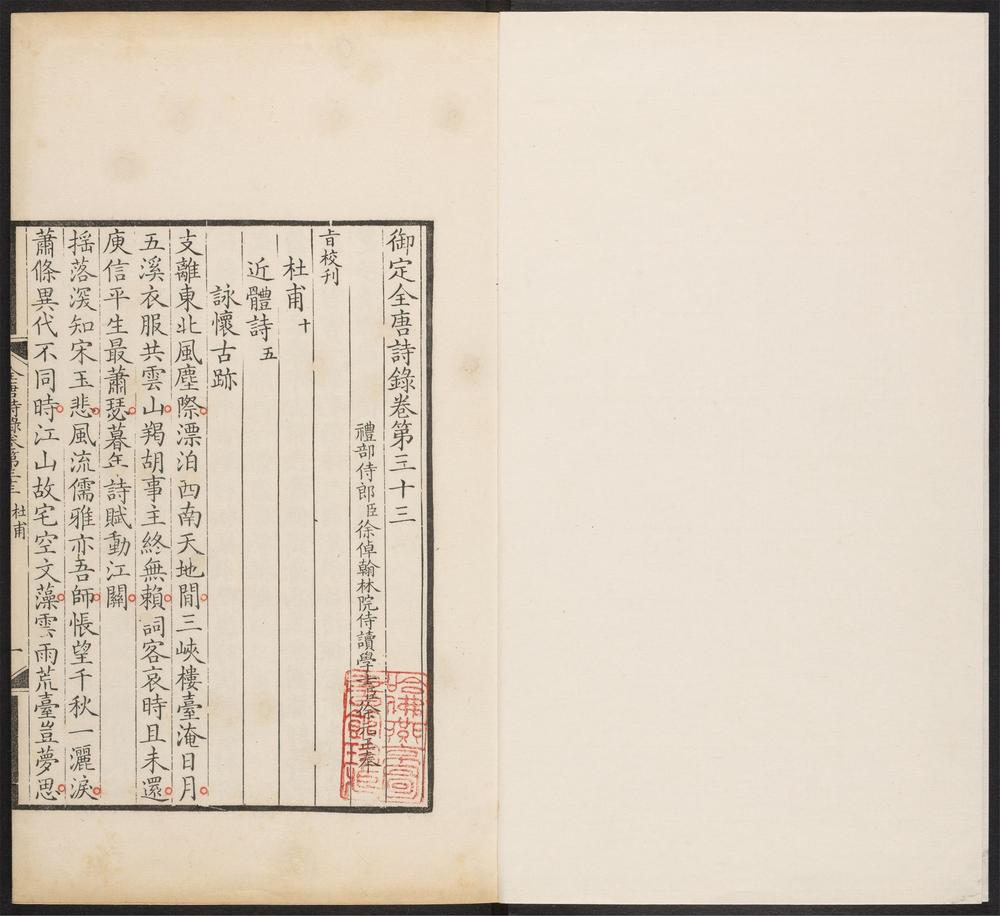 御定全唐詩錄卷第三十三
禮部侍郎臣徐倬翰林院侍讀學士臣徐元正奉
旨校刊
杜甫十
近體詩五
詠懷古跡
支離東北風塵際漂泊西南天地間三峽樓臺淹日月
五溪衣服共雲山羯胡事主終無賴詞客哀時且未還
庾信平生最蕭瑟暮年詩賦動江關
搖落深知宋玉悲風流儒雅亦吾師悵望千秋一灑淚
蕭條異代不同時江山故宅空文藻雲雨荒臺豈夢思
全唐詩錄卷第三十三 杜甫 一